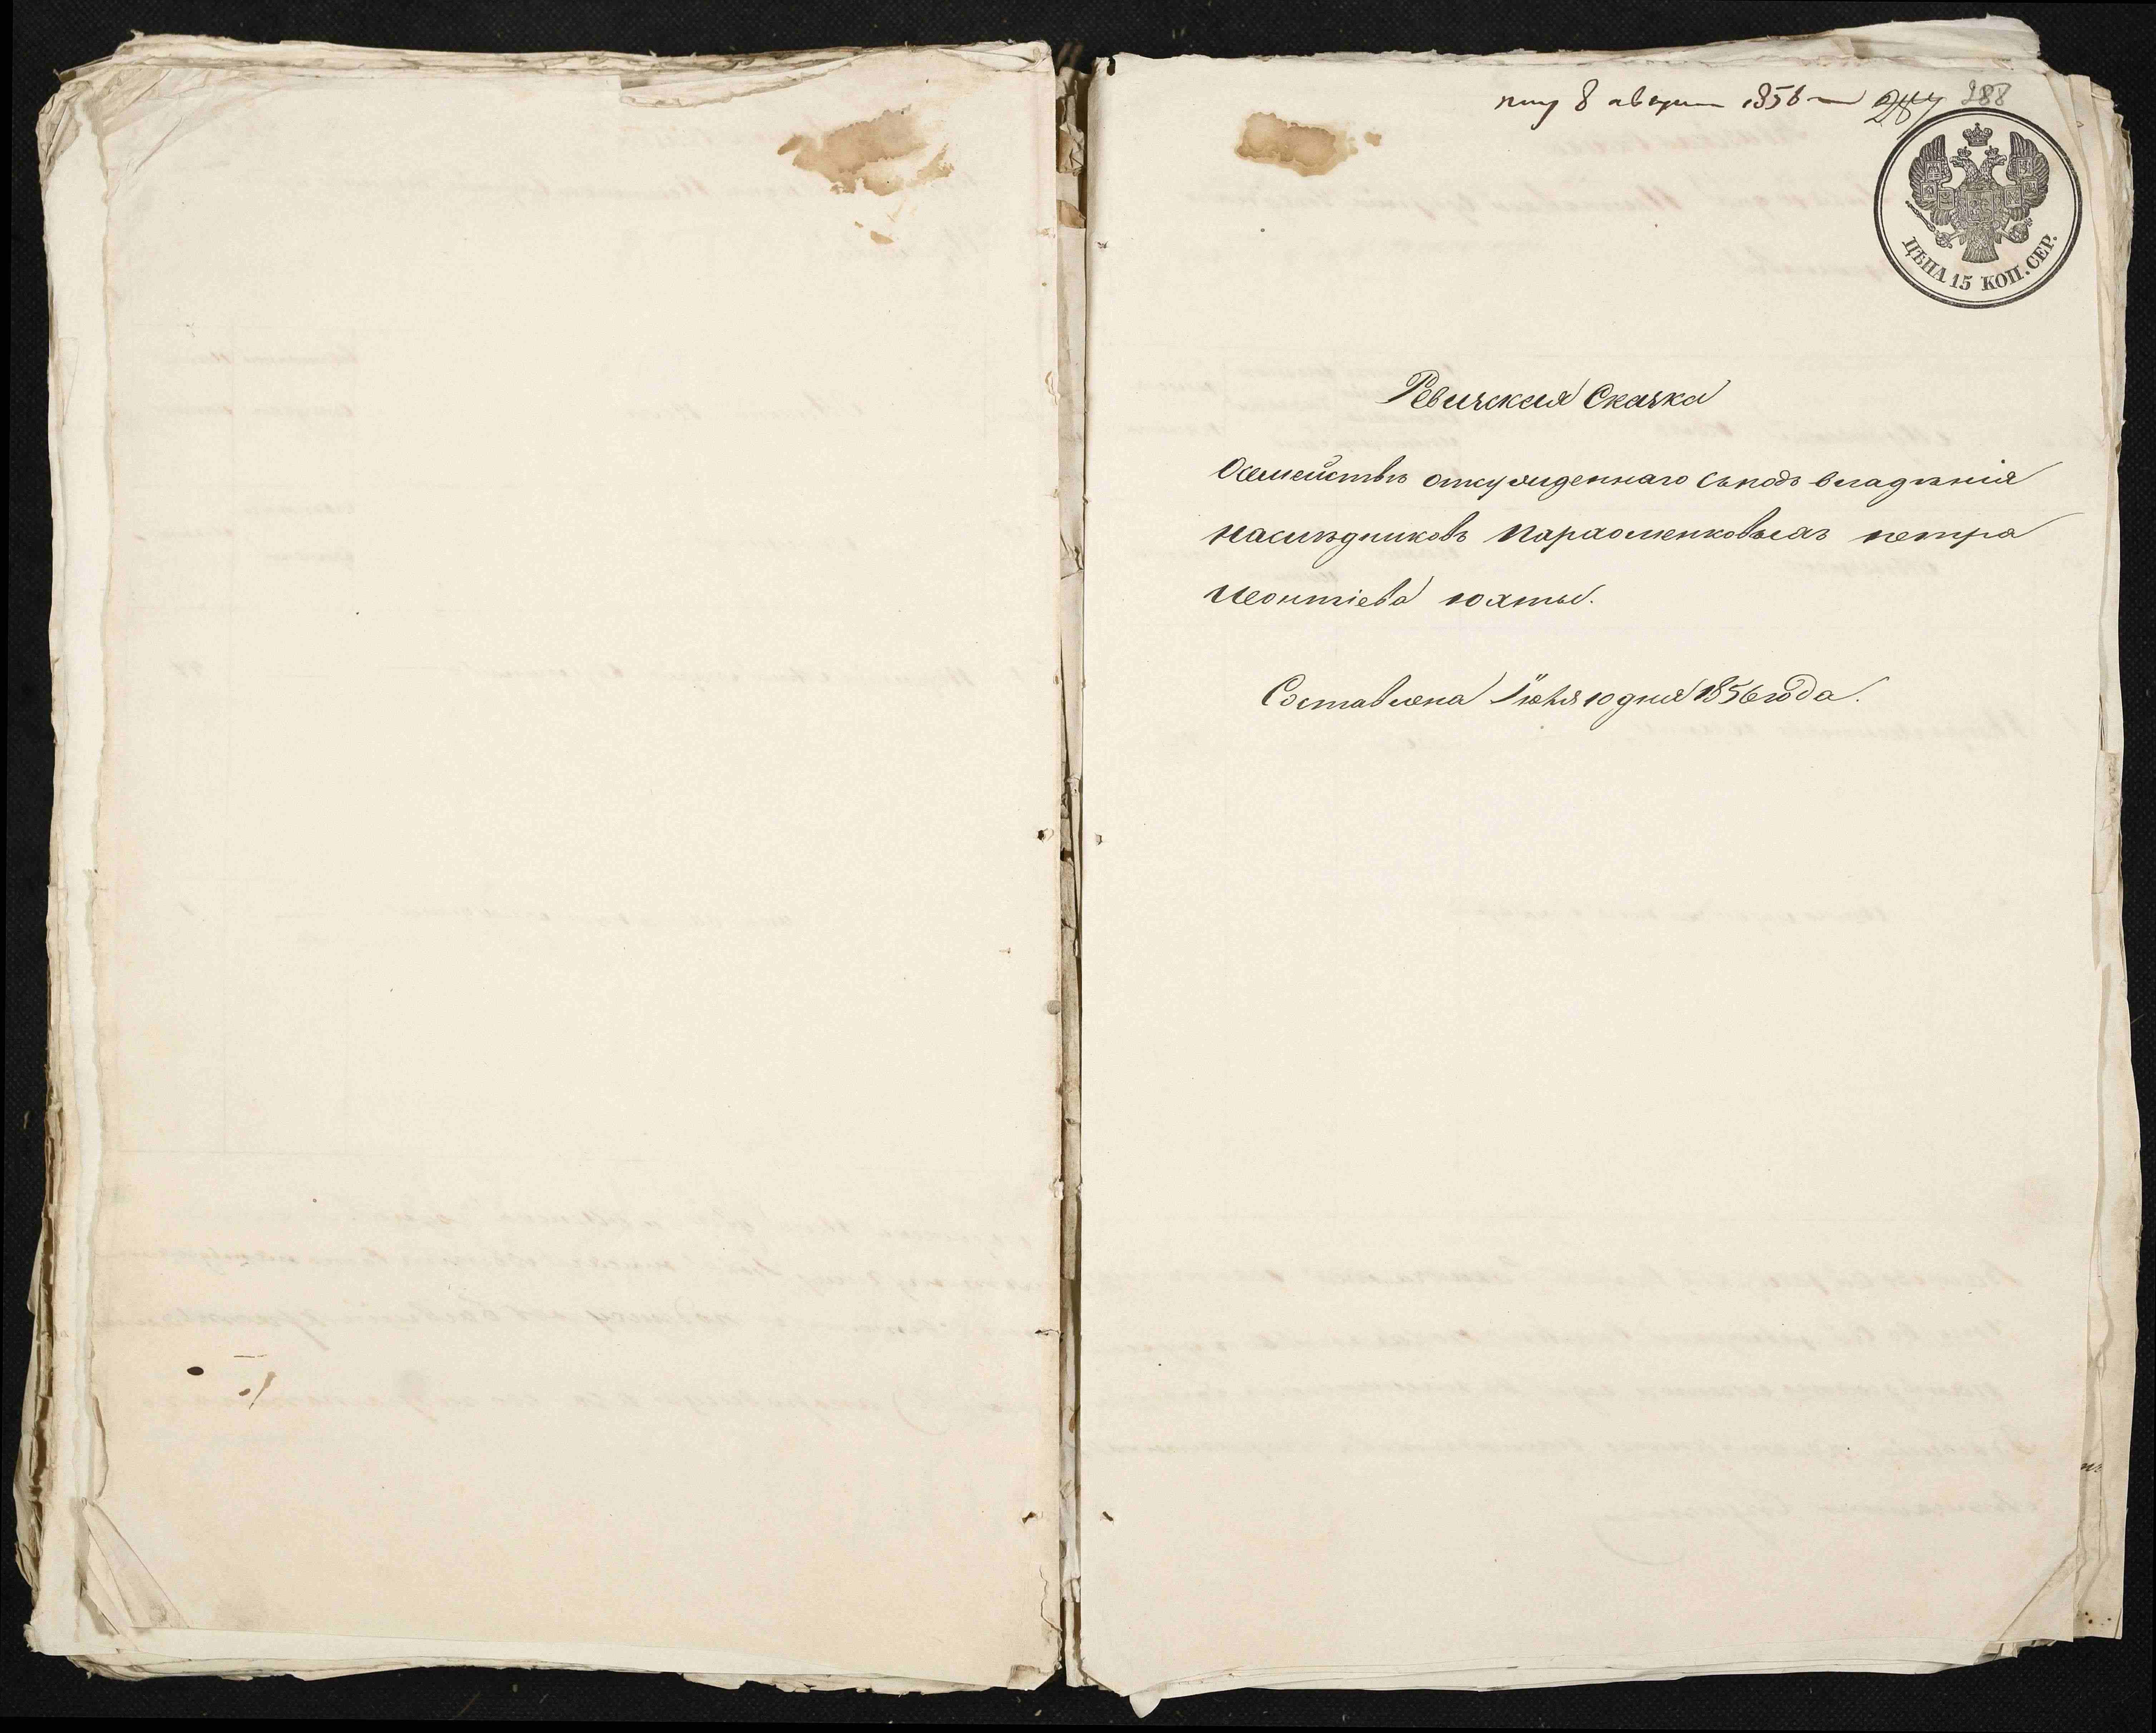 8 августа 1856
287 288
ЦѢНА 15 КОП. СЕР.
Ревизская Сказка
Осемействѣ отсужденнаго съподъ владѣнія
наслѣдниковъ Пархоменковыхъ петра
Леонтіева юхты.
Составлена Іюня 10 дня 1856 года.